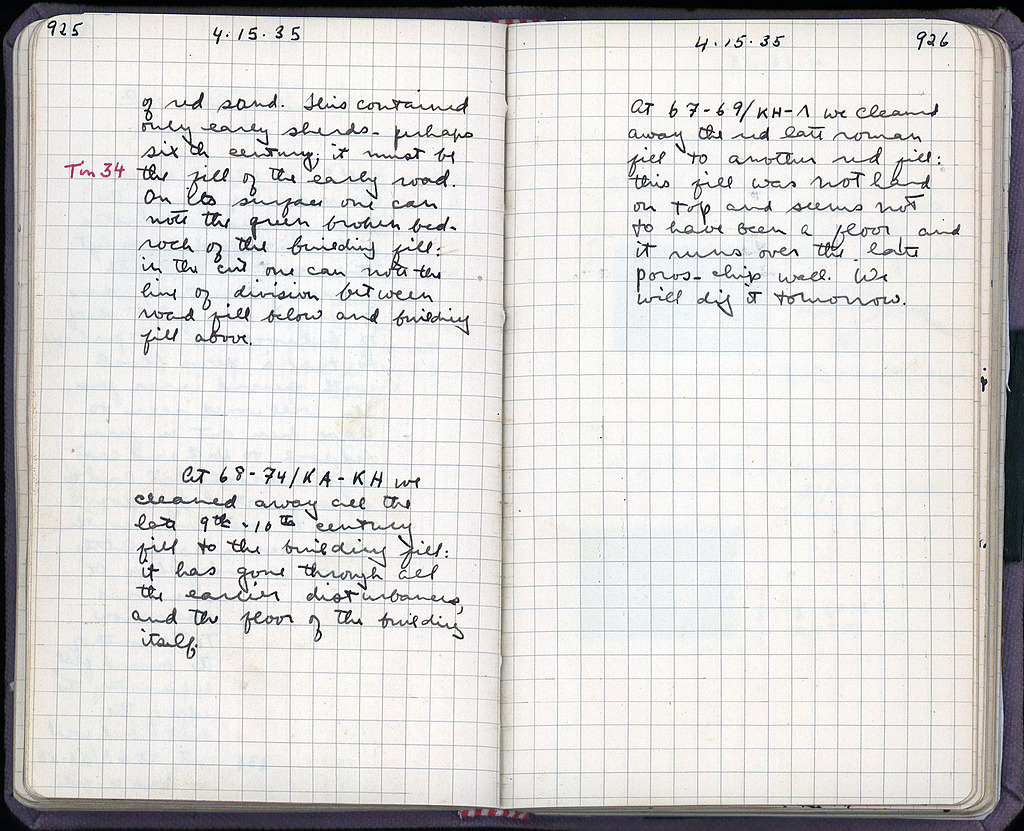 925
4.15.35
of red sand. This contained
only early sherds - perhaps
sixth century; it must be
Tin 34
the fill of the early road.
On its surface one can
note the green broken bed-
rock of the building fill:
in the cut one can note the
line of division between
road fill below and building
fill above.
At 68-74/KA-KH we
cleaned away all the
late 9th - 10th century
fill to the building fill:
it has gone through all
the earlier disturbances,
and the floor of the building
itself.
4.15.35
926
At 67-69/KH-Λ we cleaned
away the red late roman
fill to another red fill:
this fill was not hard
on top and seems not
to have been a floor and
it runs over the late
poros-chip wall. We
will dig it tomorrow.